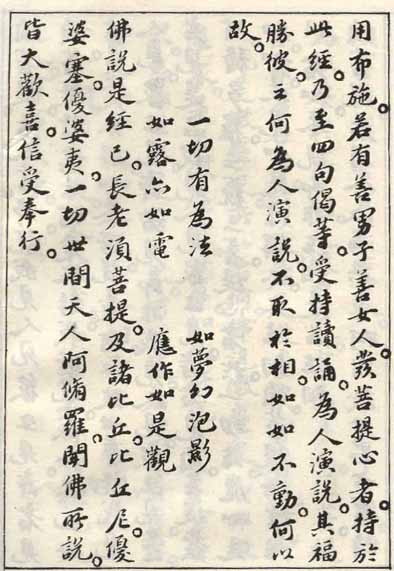 用布施。若有善男子善女人。發菩提心者。持於
此經。乃至四句偈等。受持讀誦。為人演說。其福
勝彼。云何為人演說。不取於相。如如不動。何以
故。
一切有為法　如夢幻泡影
如露亦如電　應作如是觀
佛說是經已。長老須菩提。及諸比丘。比丘尼。優
婆塞。優婆夷。一切世間天人阿脩羅。聞佛所說。
皆大歡喜。信受奉行。